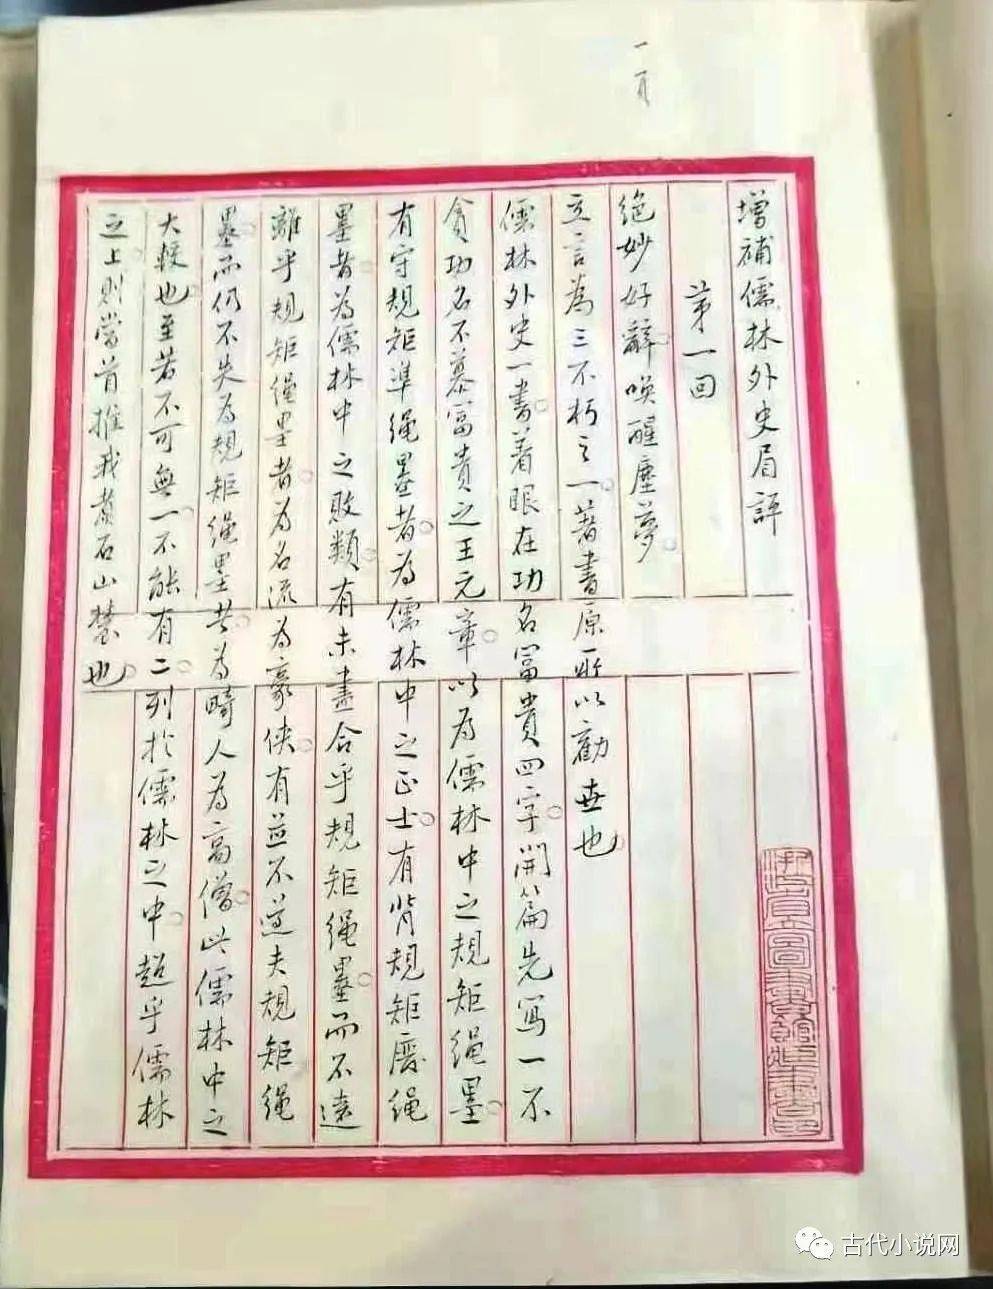 一頁
增補儒林外史眉評
第一回
绝妙好辭喚醒塵夢。
立言為三不朽之一。著書原所以勸世也
儒林外史一書。着眼在功名冨貴四字。開篇先寫一不
貪功名不慕冨貴之王元章。以為儒林中之規矩绳墨。
有守規矩準绳墨者。為儒林中之正士。有背規矩廢绳
墨者為儒林中之敗類。有未盡合乎規矩绳墨。而不遠
離乎規矩绳墨者。為名流為豪侠。有並不遵夫規矩绳
墨。而仍不失為規矩绳墨者。為畸人為高僧。此儒林中之
大較也。至若不可無一不能有二。列於儒林之中。超乎儒林
之上則當首推我黄石山樵也。
古代小说网